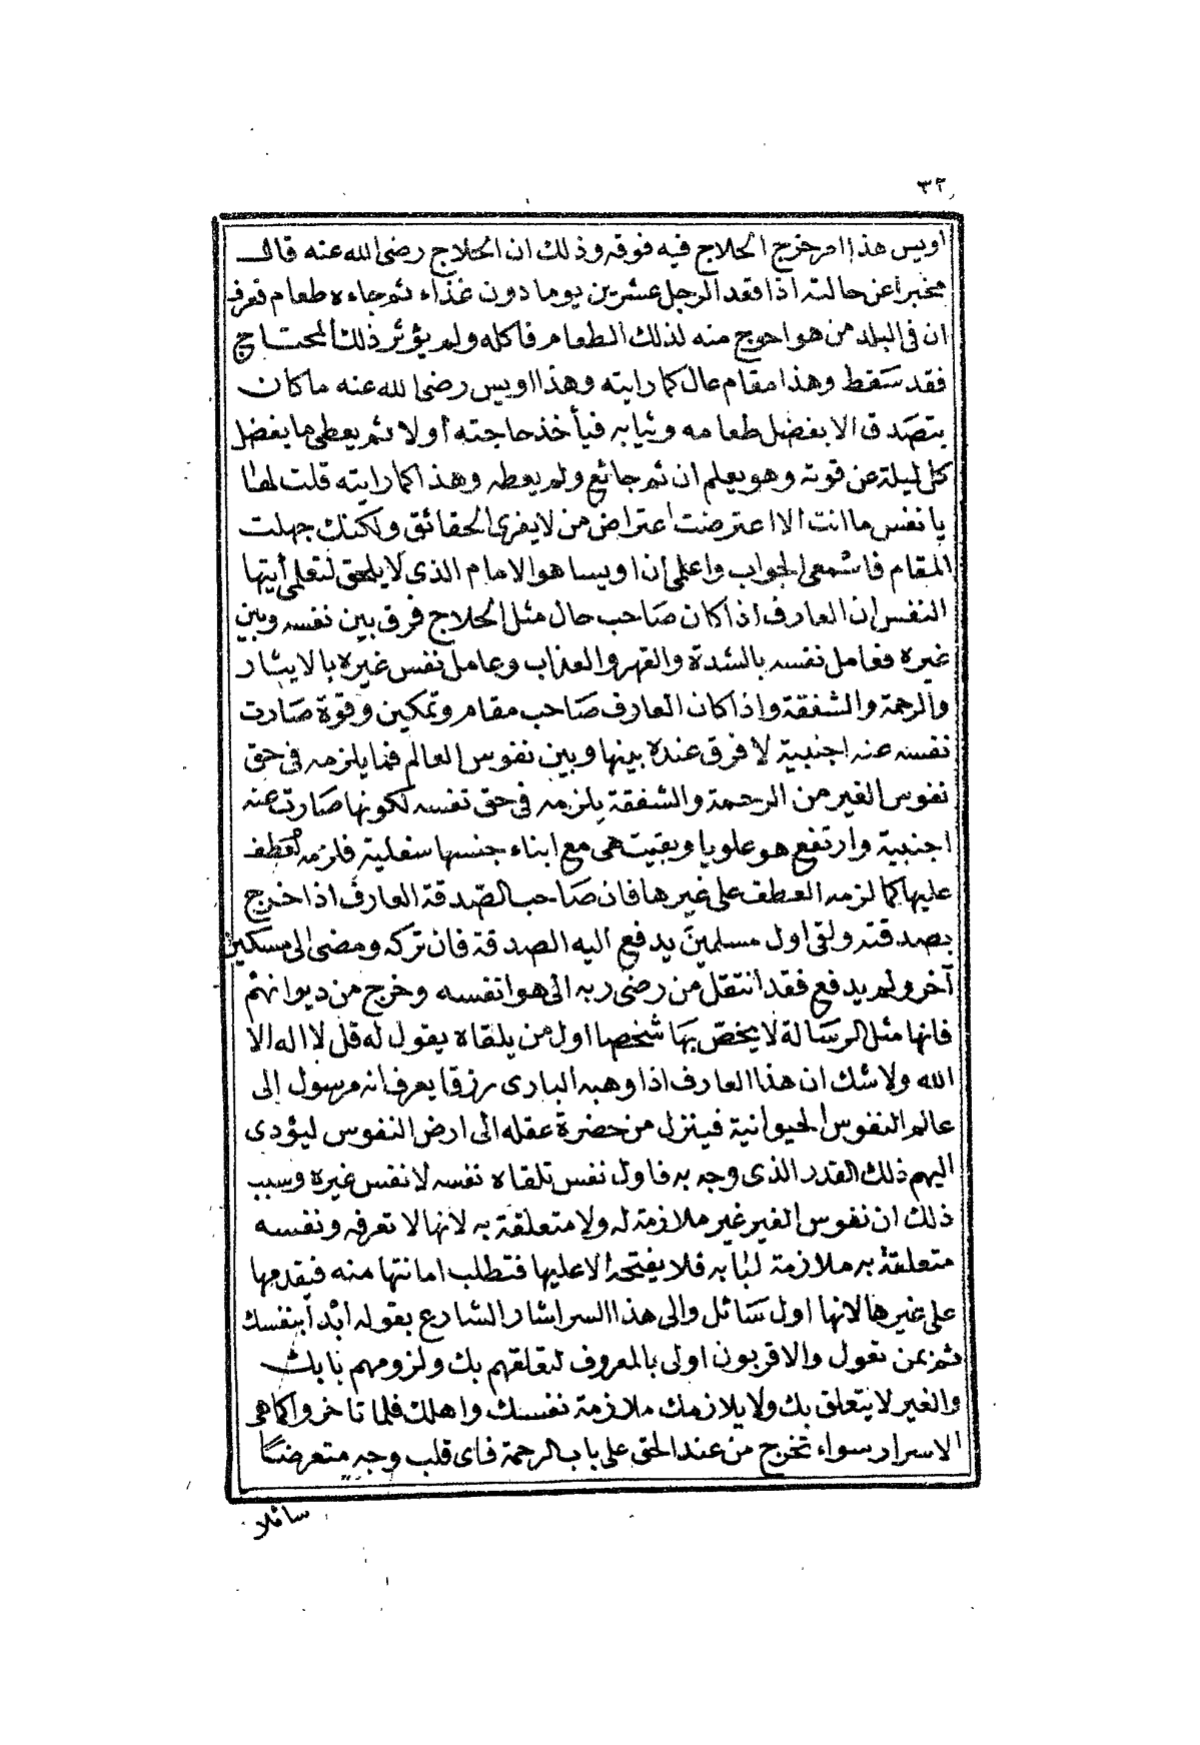 ٣٢
اويس هذا امر خرج الحلاج فيه فوقه وذلك ان الحلاج رضى الله عنه قال
مخبرا عن حالته اذا فقد الرجل عشرين يوما دون غذاء ثم جاءه طعام فعرف
ان فى البلد من هو احوج منه لذلك الطعام فاكله ولم يؤثر ذلك المحتاج
فقد سقط وهذا مقام عال كما رايته وهذا اويس رضى الله عنه ما كان
يتصدق الا بفضل طعامه وثيابه فيأخذ حاجته أولا ثم يعطى ما يفضل
كل ليلة عن قوته وهو يعلم ان ثم جائع ولم يعطه وهذا كما رايته قلت لها
يا نفس ما انت الا اعترضت اعتراض من لا يفرى الحقائق ولكنك جهلت
المقام فاسمعى الجواب واعلمى أن اويسا هو الامام الذى لا يلحق لتعلمى أيتها
النفس ان العارف اذا كان صاحب حال مثل الحلاج فرق بين نفسه وبين
غيره فعامل نفسه بالشدة والقهر والعذاب وعامل نفس غيره بالايثار
والرحمة والشفقة واذا كان العارف صاحب مقام وتمكين وقوة صارت
نفسه عنه اجنبية لا فرق عنده بينها وبين نفوس العالم فما يلزمه فى حق
نفوس الغير من الرحمة والشفقة يلزمه فى حق نفسه لكونها صارت عنه
اجنبية وارتفع هو علويا وبقيت هى مع ابناء جنسها سفلية فلزمه العطف
عليها كما لزمه العطف على غيرها فان صاحب الصدقة العارف اذا خرج
بصدقته ولقى اول مسلمين يدفع اليه الصدقة فان تركه ومضى الى مسكين
آخر ولم يدفع فقد انتقل من رضى ربه الى هوا نفسه وخرج من ديوانهم
فانها مثل الرسالة لا يخص بها شخصا اول من يلقاه يقول له قل لا اله الا
الله ولا شك ان هذا العارف اذا وهبه البارى رزقا يعرف انه مرسول إلى
عالم النفوس الحيوانية فينزل من حضرة عقله الى ارض النفوس ليؤدى
اليهم ذلك القدر الذى وجه به فاول نفس تلقاه نفسه لا نفس غيره وسبب
ذلك ان نفوس الغير غير ملازمة له ولا متعلقة به لانها لا تعرفه ونفسه
متعلقة به ملازمة لبابه فلا يفتحه الا عليها فتطلب امانتها منه فيقدمها
على غيرها لانها اول سائل والى هذا السر اشار الشارع بقوله ابدأ بنفسك
ثم بمن تعول والاقربون اولى بالمعروف لتعلقهم بك ولزومهم بابك
والغير لا يتعلق بك ولا يلازمك ملازمة نفسك واهلك فلما تاخروا كما هى
الاسرار سواء تخرج من عند الحق على باب الرحمة فاى قلب وجد متعرضا
سائلا